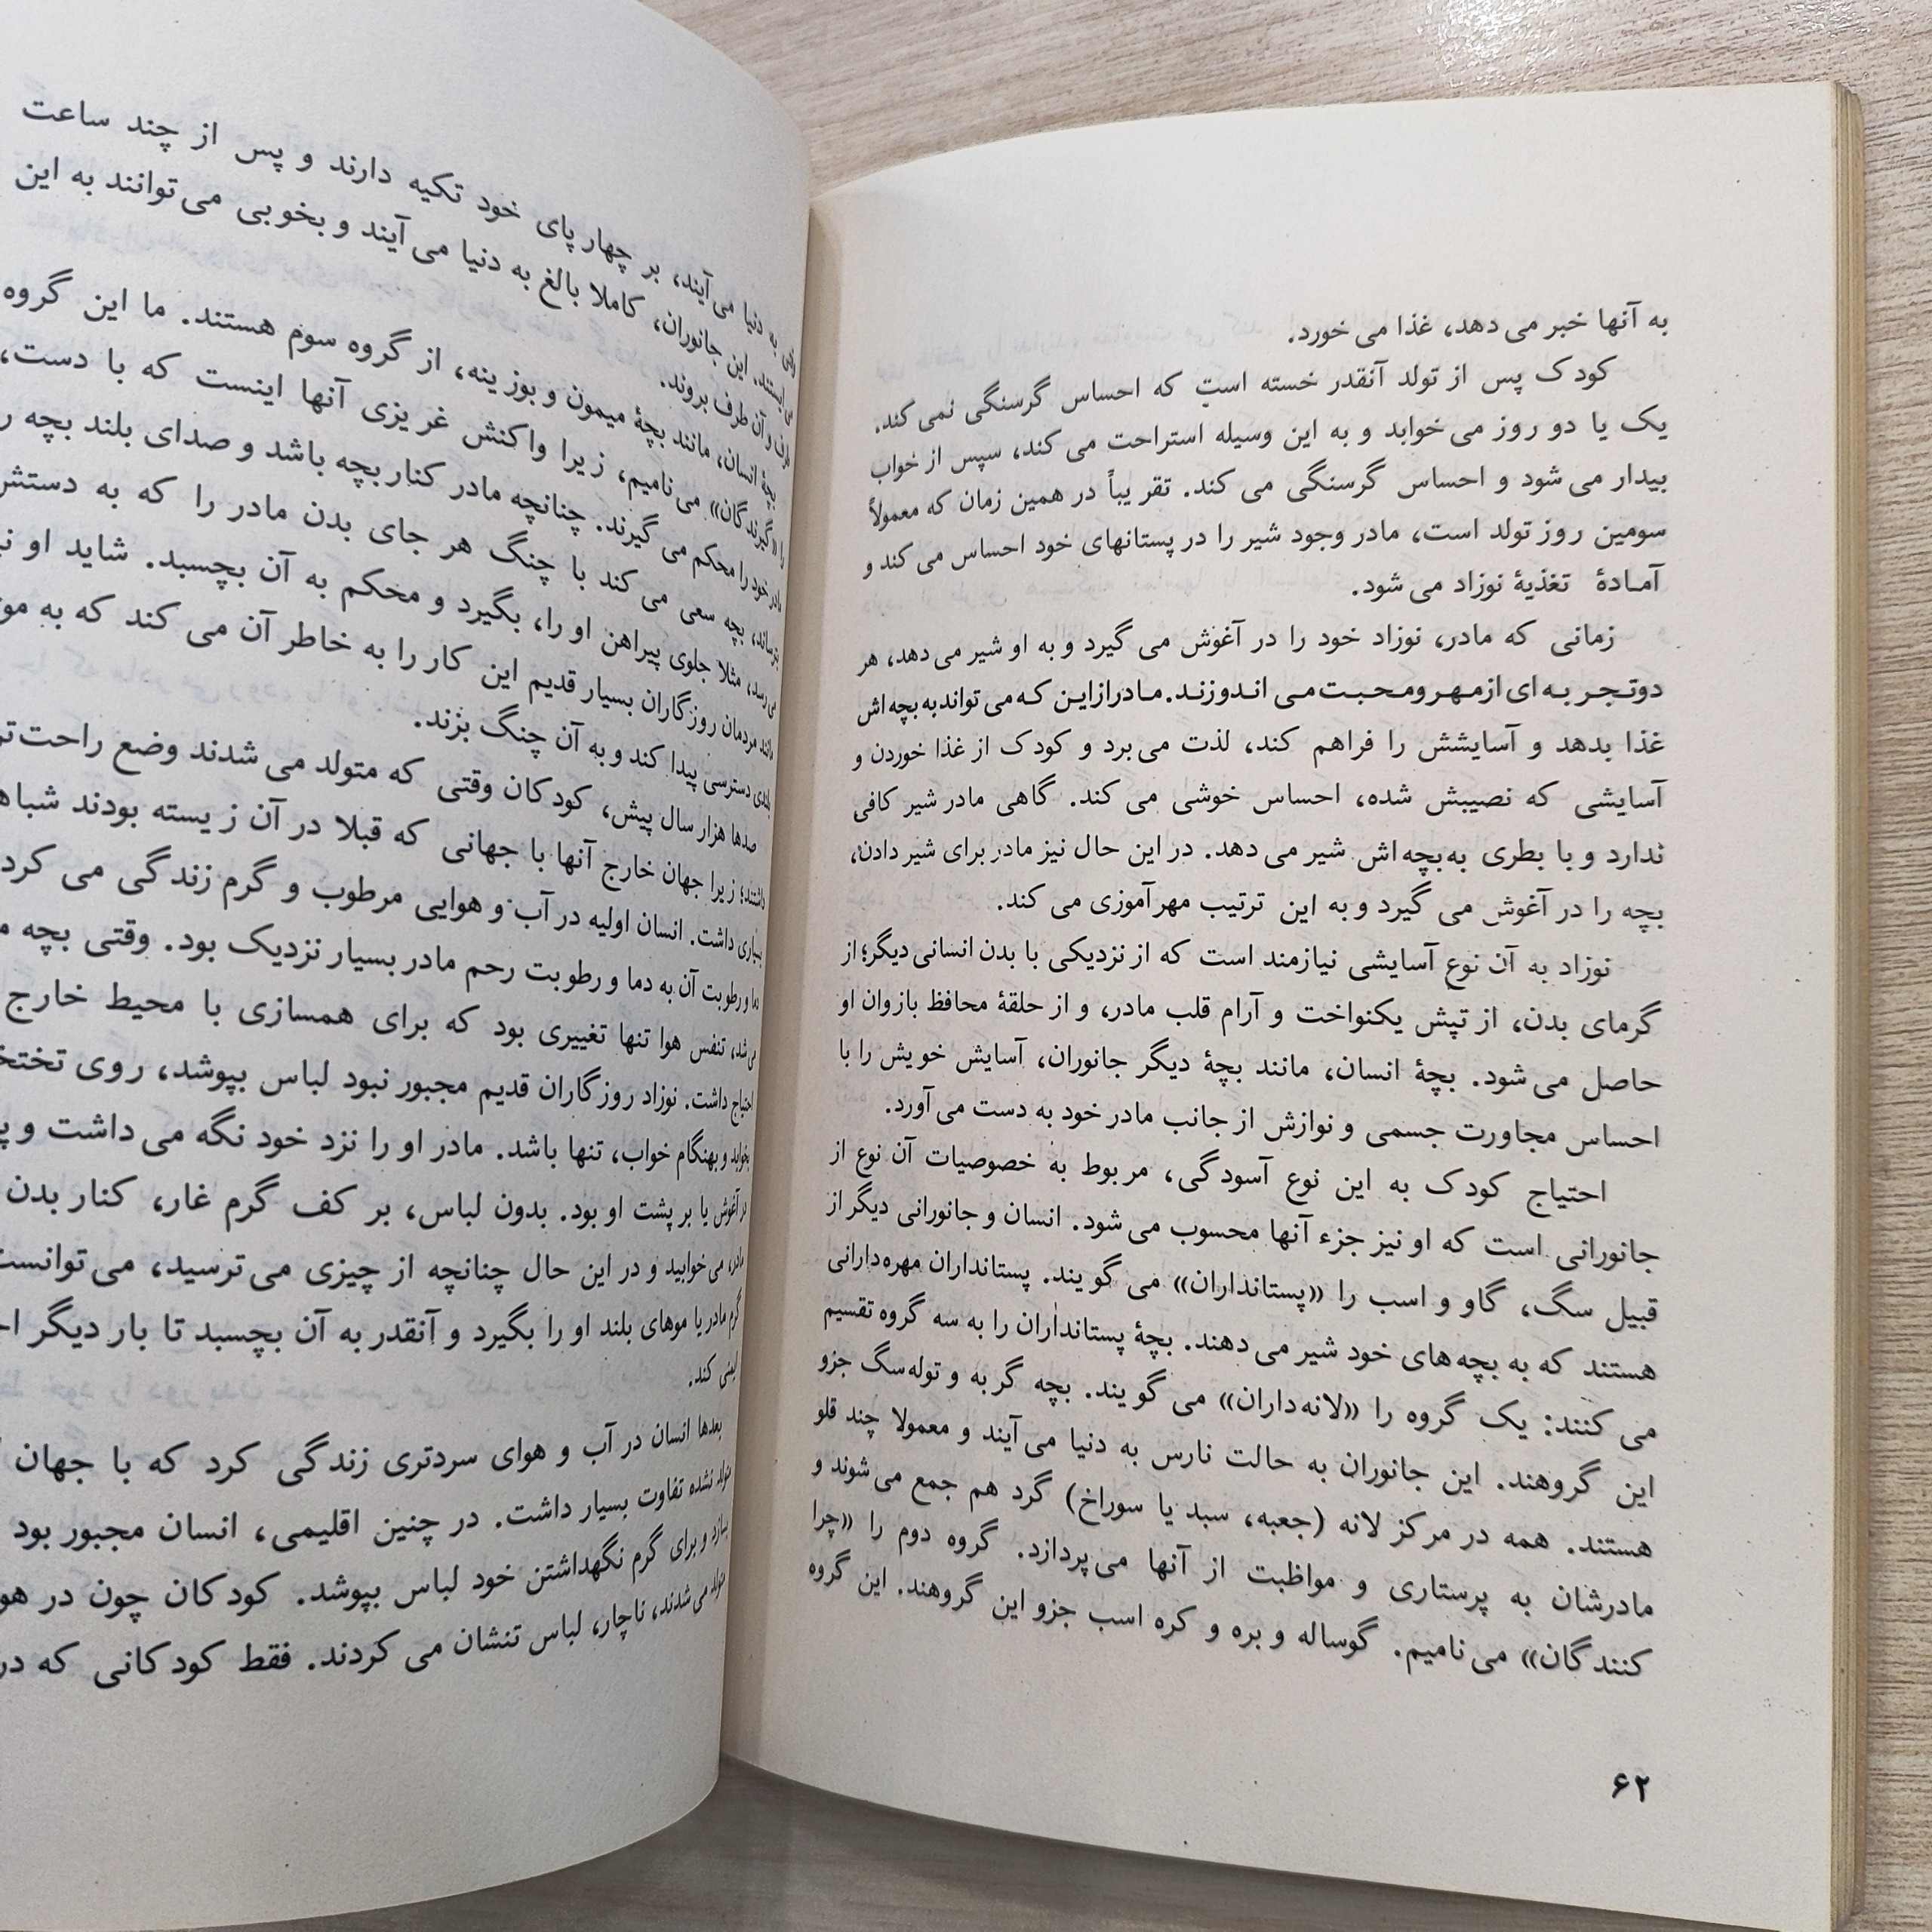 به آنها خبر می‌دهد، غذا می‌خورد.
کودک پس از تولد آنقدر خسته است که احساس گرسنگی نمی‌کند.
یک یا دو روز می‌خوابد و به این وسیله استراحت می‌کند، سپس از خواب
بیدار می‌شود و احساس گرسنگی می‌کند. تقریباً در همین زمان که معمولاً
سومین روز تولد است، مادر وجود شیر را در پستانهای خود احساس می‌کند و
آمادهٔ تغذیهٔ نوزاد می‌شود.
زمانی که مادر، نوزاد خود را در آغوش می‌گیرد و به او شیر می‌دهد، هر
دو تجربه‌ای از مهر و محبت می‌اندوزند. مادر از این که می‌تواند به بچه‌اش
غذا بدهد و آسایشش را فراهم کند، لذت می‌برد و کودک از غذا خوردن و
آسایشی که نصیبش شده، احساس خوشی می‌کند. گاهی مادر شیر کافی
ندارد و با بطری به بچه‌اش شیر می‌دهد. در این حال نیز مادر برای شیر دادن،
بچه را در آغوش می‌گیرد و به این ترتیب مهرآموزی می‌کند.
نوزاد به آن نوع آسایشی نیازمند است که از نزدیکی با بدن انسانی دیگر؛ از
گرمای بدن، از تپش یکنواخت و آرام قلب مادر، و از حلقهٔ محافظ بازوان او
حاصل می‌شود. بچهٔ انسان، مانند بچهٔ دیگر جانوران، آسایش خویش را با
احساس مجاورت جسمی و نوازش از جانب مادر خود به دست می‌آورد.
احتیاج کودک به این نوع آسودگی، مربوط به خصوصیات آن نوع از
جانورانی است که او نیز جزء آنها محسوب می‌شود. انسان و جانورانی دیگر از
قبیل سگ، گاو و اسب را «پستانداران» می‌گویند. پستانداران مهره‌دارانی
هستند که به بچه‌های خود شیر می‌دهند. بچهٔ پستانداران را به سه گروه تقسیم
می‌کنند: یک گروه را «لانه‌داران» می‌گویند. بچه گربه و توله‌سگ جزو
این گروهند. این جانوران به حالت نارس به دنیا می‌آیند و معمولا چند قلو
هستند. همه در مرکز لانه (جعبه، سبد یا سوراخ) گرد هم جمع می‌شوند و
مادرشان به پرستاری و مواظبت از آنها می‌پردازد. گروه دوم را «چرا
کنندگان» می‌نامیم. گوساله و بره و کره اسب جزو این گروهند. این گروه
۶۲
وقتی به دنیا می‌آیند، بر چهارپای خود تکیه دارند و پس از چند ساعت
می‌ایستند. این جانوران، کاملا بالغ به دنیا می‌آیند و بخوبی می‌توانند به این
طرف و آن طرف بروند.
بچهٔ انسان، مانند بچهٔ میمون و بوزینه، از گروه سوم هستند. ما این گروه
را «گیرندگان» می‌نامیم، زیرا واکنش غریزی آنها اینست که با دست،
مادر خود را محکم می‌گیرند. چنانچه مادر کنار بچه باشد و صدای بلند بچه
بترساند، بچه سعی می‌کند با چنگ هر جای بدن مادر را که به دستش
می‌رسد، مثلا جلوی پیراهن او را، بگیرد و محکم به آن بچسبد. شاید او
مانند مردمان روزگاران بسیار قدیم این کار را به خاطر آن می‌کند که به
بلندی دسترسی پیدا کند و به آن چنگ بزند.
صدها هزار سال پیش، کودکان وقتی که متولد می‌شدند وضع
داشتند؛ زیرا جهان خارج آنها با جهانی که قبلا در آن زیسته بودند
بسیاری داشت. انسان اولیه در آب و هوایی مرطوب و گرم زندگی می‌کرد
دما و رطوبت آن به دما و رطوبت رحم مادر بسیار نزدیک بود. وقتی بچه
می‌شد، تنفس هوا تنها تغییری بود که برای همسازی با محیط خارج
احتیاج داشت. نوزاد روزگاران قدیم مجبور نبود لباس بپوشد، روی
بخوابد و بهنگام خواب، تنها باشد. مادر او را نزد خود نگه می‌داشت و
در آغوش یا بر پشت او بود. بدون لباس، بر کف گرم غار، کنار بدن
مادر، می‌خوابید و در این حال چنانچه از چیزی می‌ترسید، می‌توانست
گرم مادر یا موهای بلند او را بگیرد و آنقدر به آن بچسبد تا بار دیگر
ایمنی کند.
بعدها انسان در آب و هوای سردتری زندگی کرد که با جهان
متولد نشده تفاوت بسیار داشت. در چنین اقلیمی، انسان مجبور بود
بسازد و برای گرم نگهداشتن خود لباس بپوشد. کودکان چون در
متولد می‌شدند، ناچار، لباس تنشان می‌کردند. فقط کودکانی که در